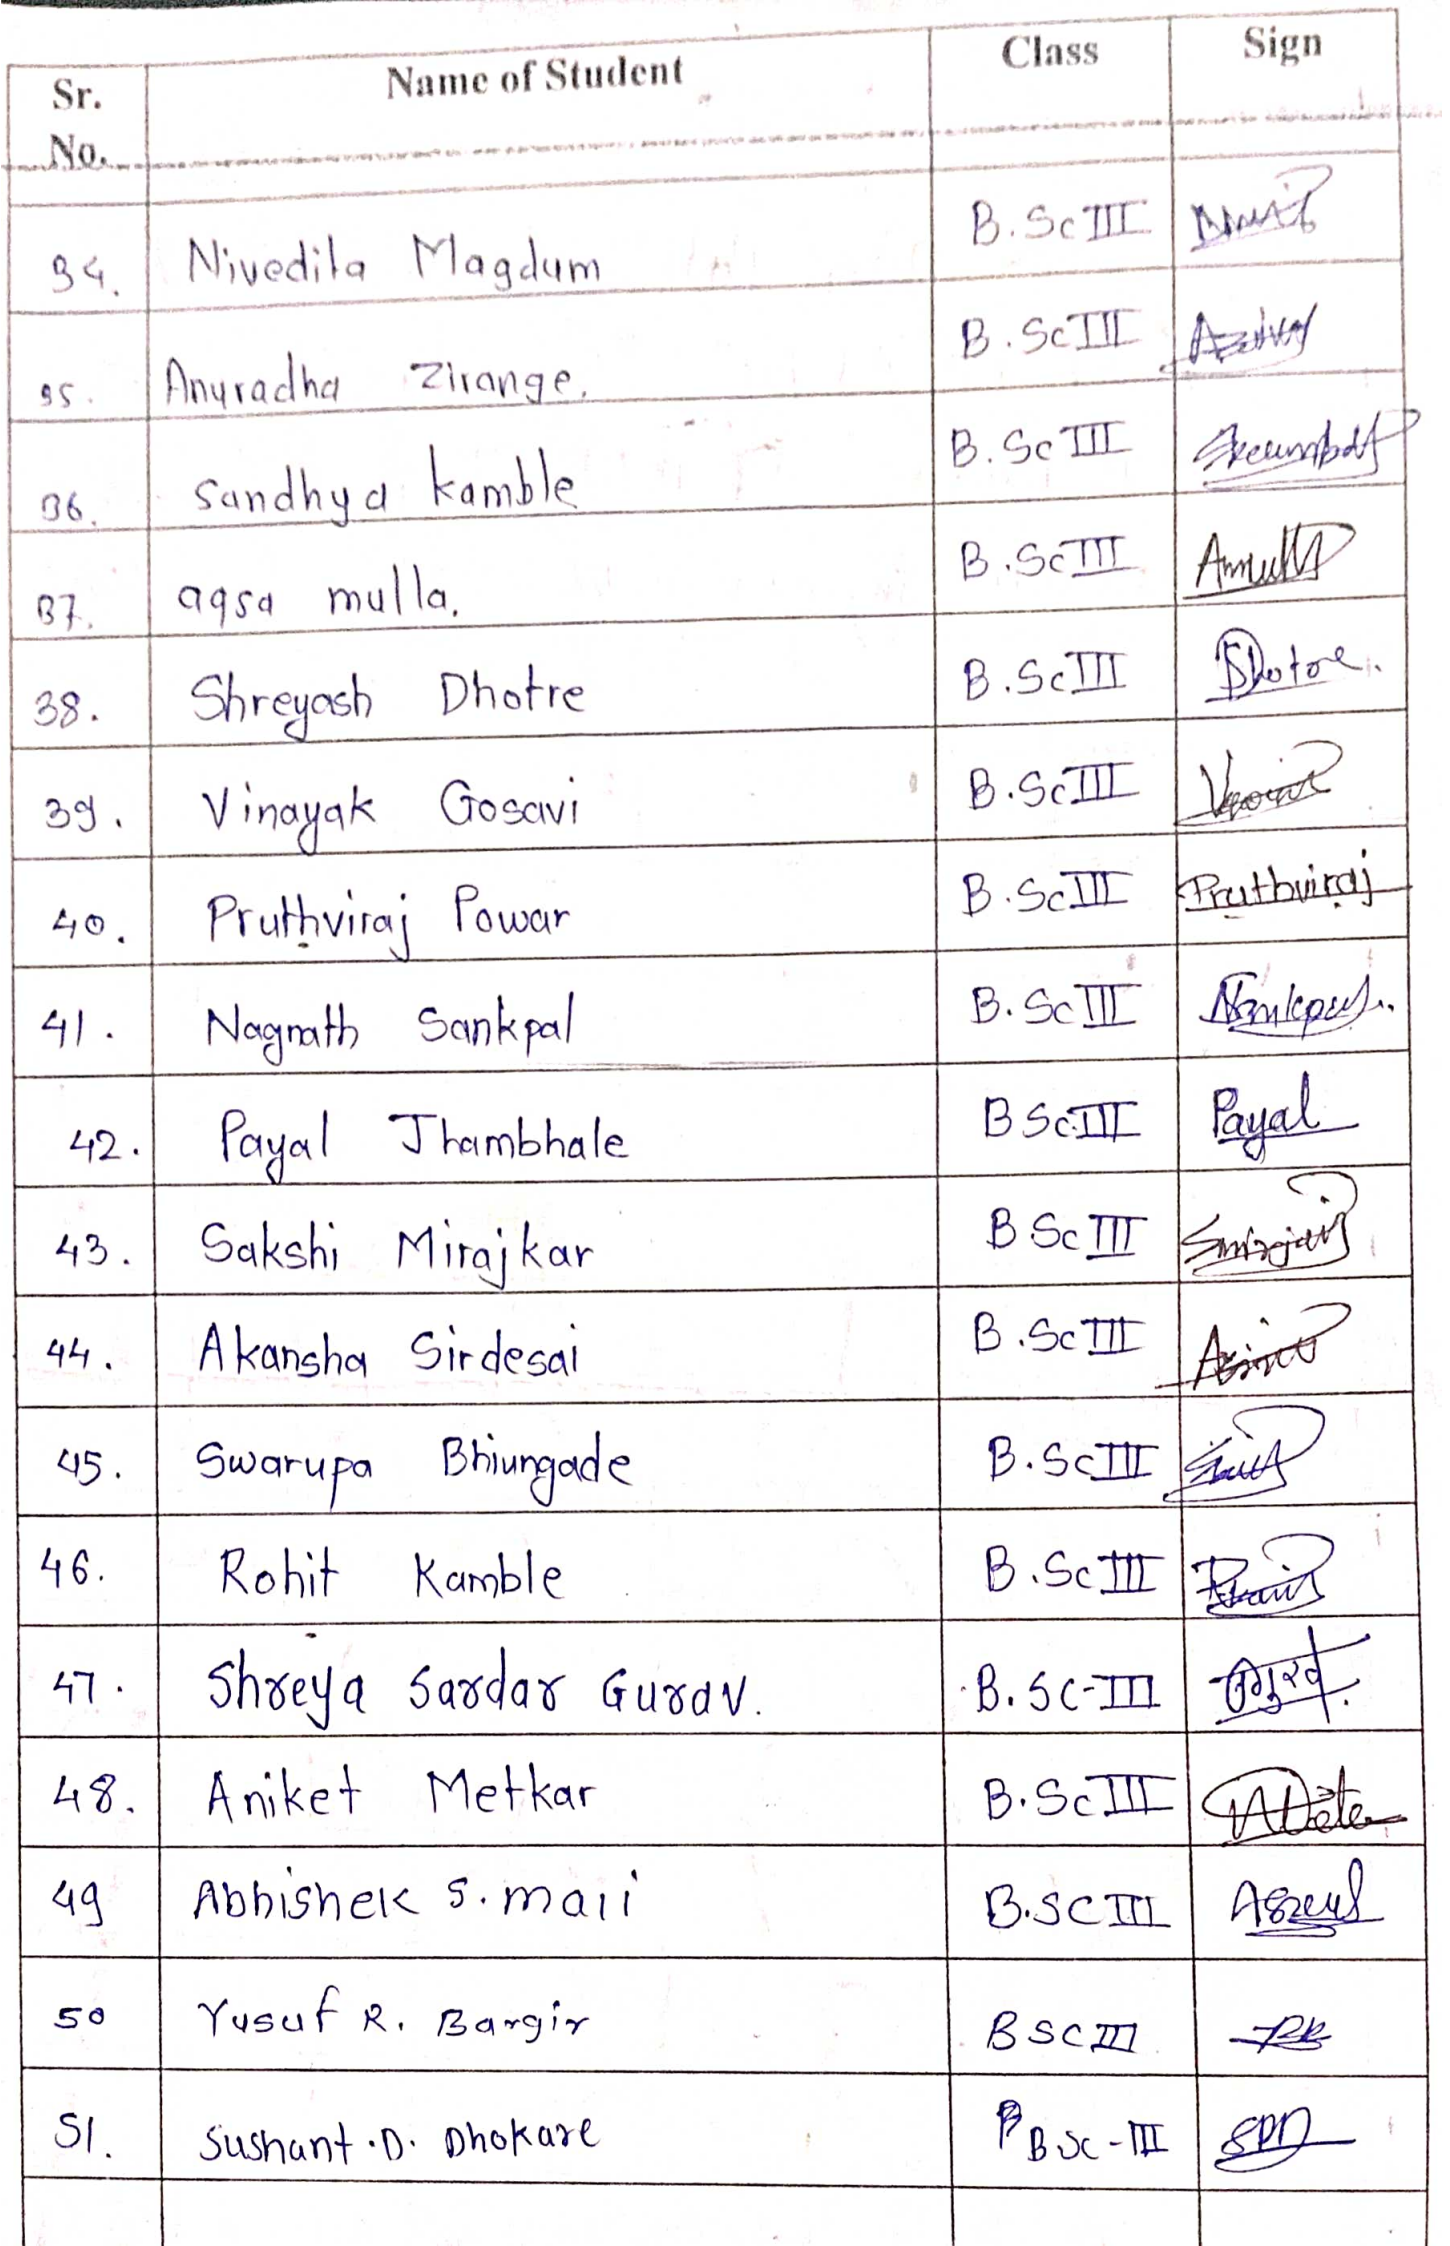 Sr. No. Name of Student Class Sign
34. Nivedita Magdum B.Sc III
35. Anuradha Zirange. B.Sc III
36. Sandhya kamble B.Sc III
37. aqsa mulla. B.Sc III
38. Shreyash Dhotre B.Sc III Dhotre.
39. Vinayak Gosavi B.Sc III
40. Pruthviraj Powar B.Sc III Pruthviraj
41. Nagnath Sankpal B.Sc III
42. Payal Jhambhale B Sc III Payal
43. Sakshi Mirajkar B Sc III
44. Akansha Sirdesai B.Sc III
45. Swarupa Bhiungade B.Sc III
46. Rohit Kamble B.Sc III
47. Shreya Sardar Gurav. B.Sc-III
48. Aniket Metkar B.Sc III
49 Abhishek S. mali B.SC III
50 Yusuf R. Bargir B SC III
51. Sushant.D. Dhokare B SC-III